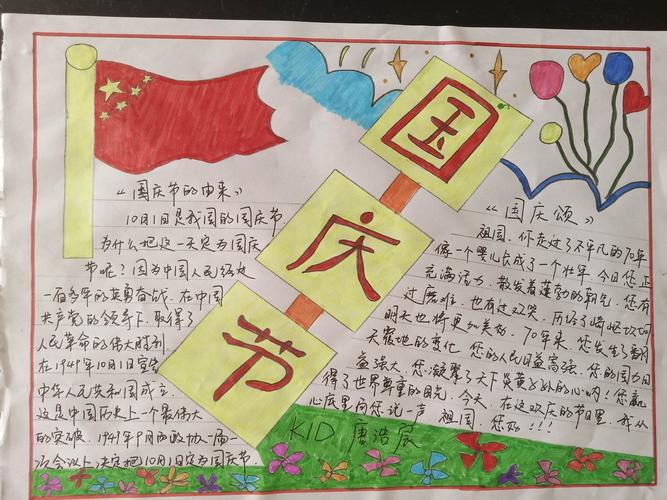 国庆节
《国庆节的由来》
10月1日是我国的国庆节
为什么把这一天定为国庆
节呢？因为中国人民经过
一百多年的英勇奋战，在中国
共产党的领导下，取得了
人民革命的伟大胜利
在1949年10月1日宣告
中华人民共和国成立，
这是中国历史上一个最伟大
的突破．1949年9月的政协一届一
次会议上决定把10月1日定为国庆节．
《国庆颂》
祖国，你走过了不平凡的70年
像一个婴儿长成了一个壮年，今日您正
充满活力，散发着蓬勃的朝气，您有
过磨难，也有过欢笑，历经了崎岖坎坷
明天也将更加美好．70年来，您发生了翻
天覆地的变化，您的人民日益高强，您的国力日
益强大，您凝聚了天下炎黄子孙的心呐！您赢
得了世界尊重的目光，今天，在这欢庆的节日里，我从
心底里向您说一声 祖国，您好！！！
KID 唐浩宸